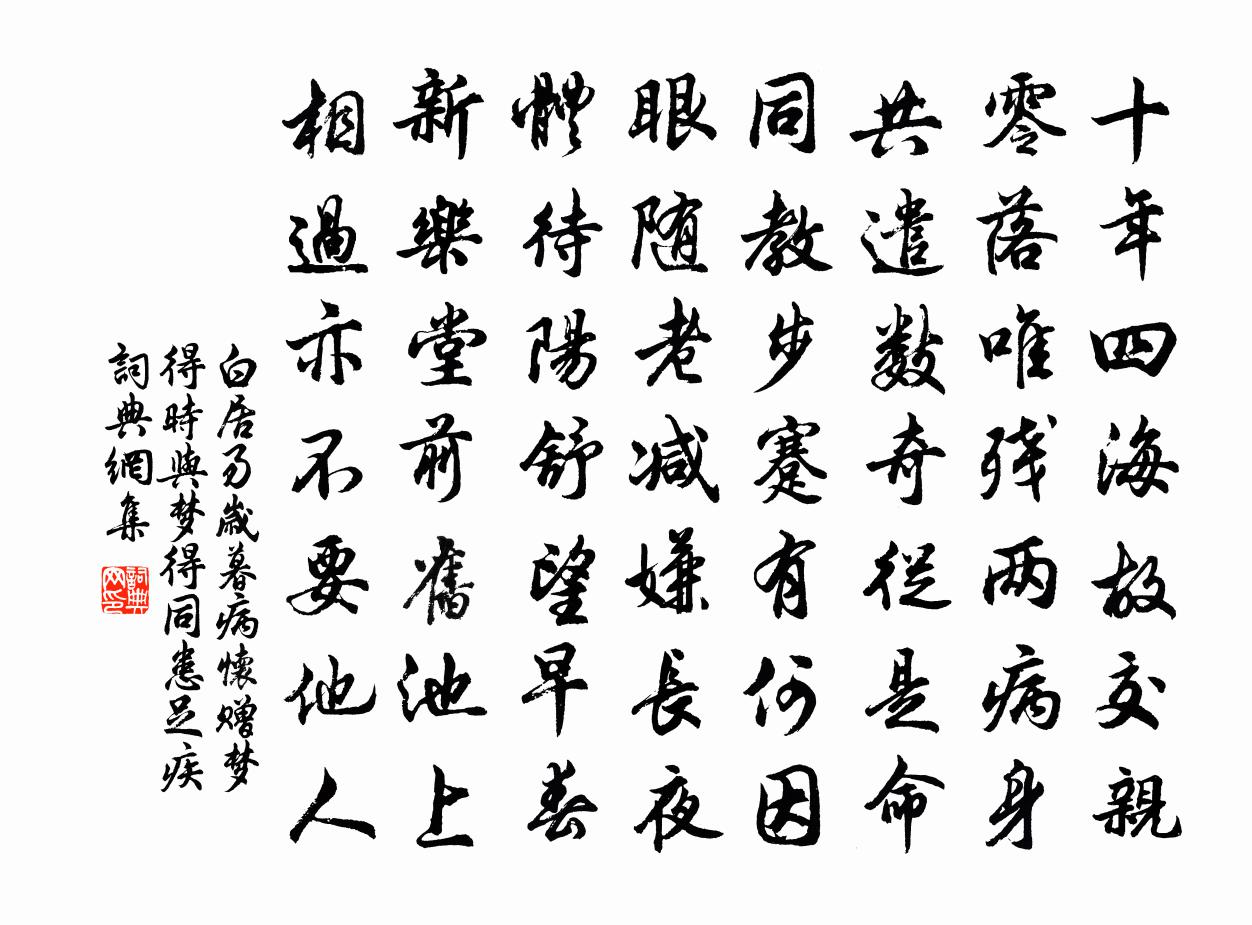 十年四海故交親
零落唯残兩病身
共遣數奇從是命
同教步蹇有何因
眼随老减嫌長夜
體待陽舒望早春
新樂堂前舊池上
相過亦不要他人
白居易歲暮病懷赠梦
得時與梦得同患足疾
詞典網集
詞典
网印